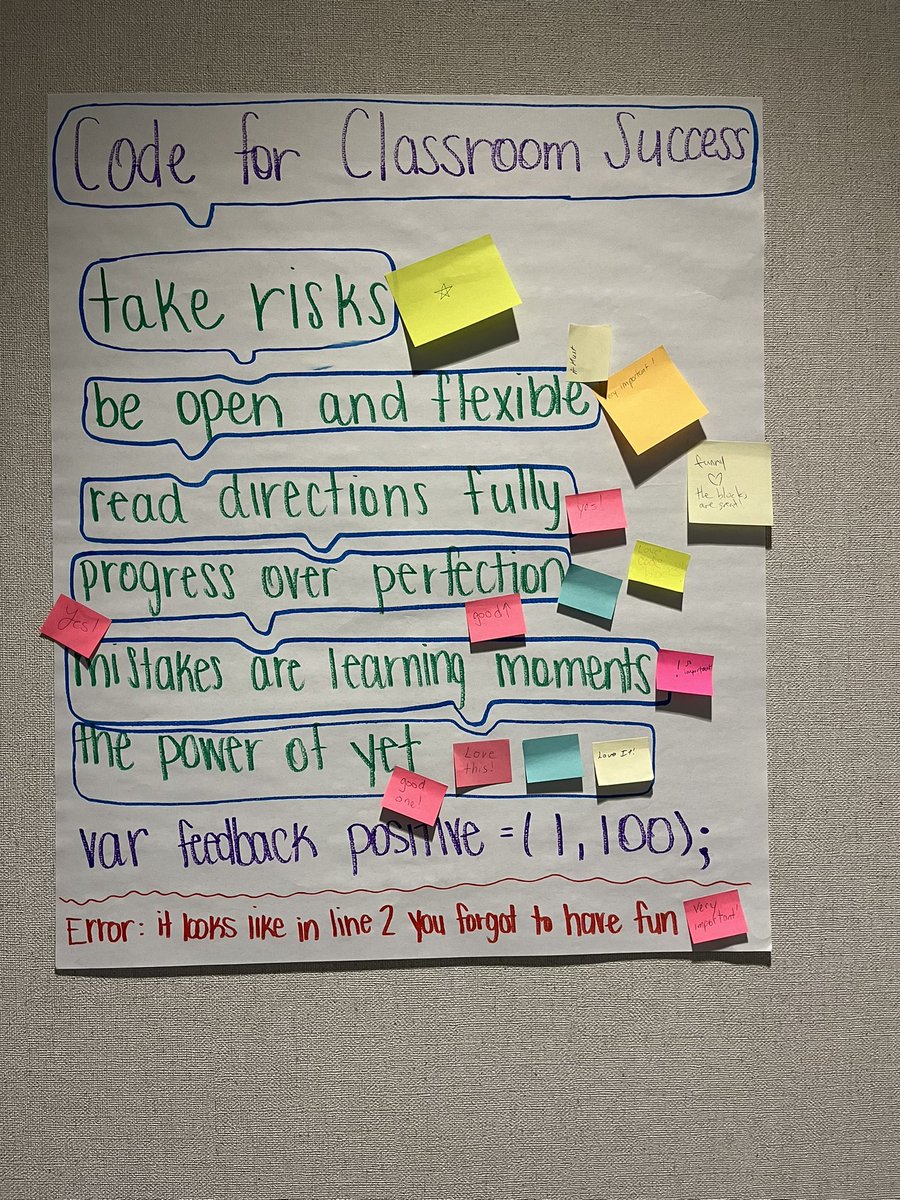 Code for Classroom Success
take risks
be open and flexible
very important!
funny
the blocks
are great!
read directions fully
yes!
Love
code
progress over perfection
good↑
Yes!
mistakes are learning moments
! so
important
the power of yet
Love
this!
Love It!
good
one!
var feedback positive = (1, 100);
Error: it looks like in line 2 you forgot to have fun
Very
important!